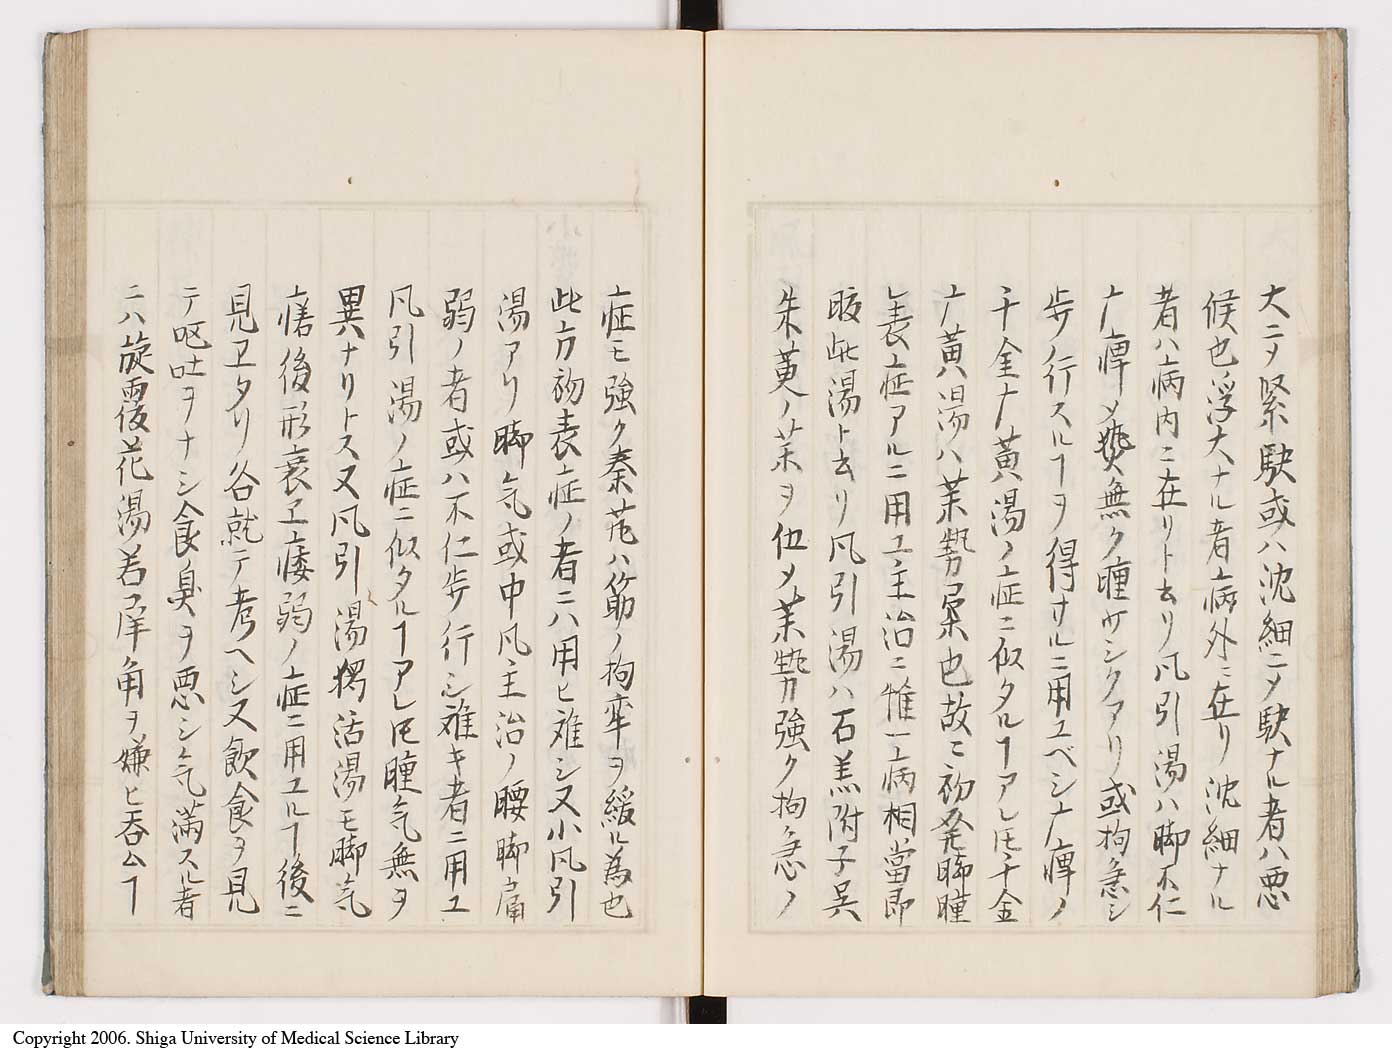 大ニメ緊駃或ハ沈細ニメ駃ナル者ハ悪
候也浮大ナル者病外ニ在リ沈細ナル
者ハ病内ニ在リト云リ凡引湯ハ脚不仁
广痺メ痿無ク瘇サシクアリ或拘急シ
歩行スルヿヲ得サルニ用ユベシ广痺ノ
千金广黄湯ノ症ニ似タルヿアレ𪜈千金
广黄湯ハ茉勢柔也故ニ初発脚瞳
レ表症アルニ用ユ主治ニ惟一病相當即
販此湯ト云リ凡引湯ハ石羔附子呉
朱萸ノ茉ヲ伍メ茉勢強ク拘急ノ
症モ強ク秦芁ハ筋ノ拘牢ヲ緩ル為也
此方初表症ノ者ニハ用ヒ难シ又小凡引
湯アリ脚气或中凡主治ノ腰脚扇
弱ノ者或ハ不仁歩行シ难キ者ニ用ユ
凡引湯ノ症ニ似タルヿアレ𪜈瞳气無ヲ
異ナリトス又凡引湯獨活湯モ脚气
瘥後形衰ヱ痿弱ノ症ニ用ユルヿ後ニ
見ヱタリ各就テ考ヘシ又飲食ヲ見
テ呕吐ヲナシ食臭ヲ悪シ气満スル者
ニハ旋覆花湯若犀角ヲ嫌ヒ呑ムヿ
Copyright 2006. Shiga University of Medical Science Library